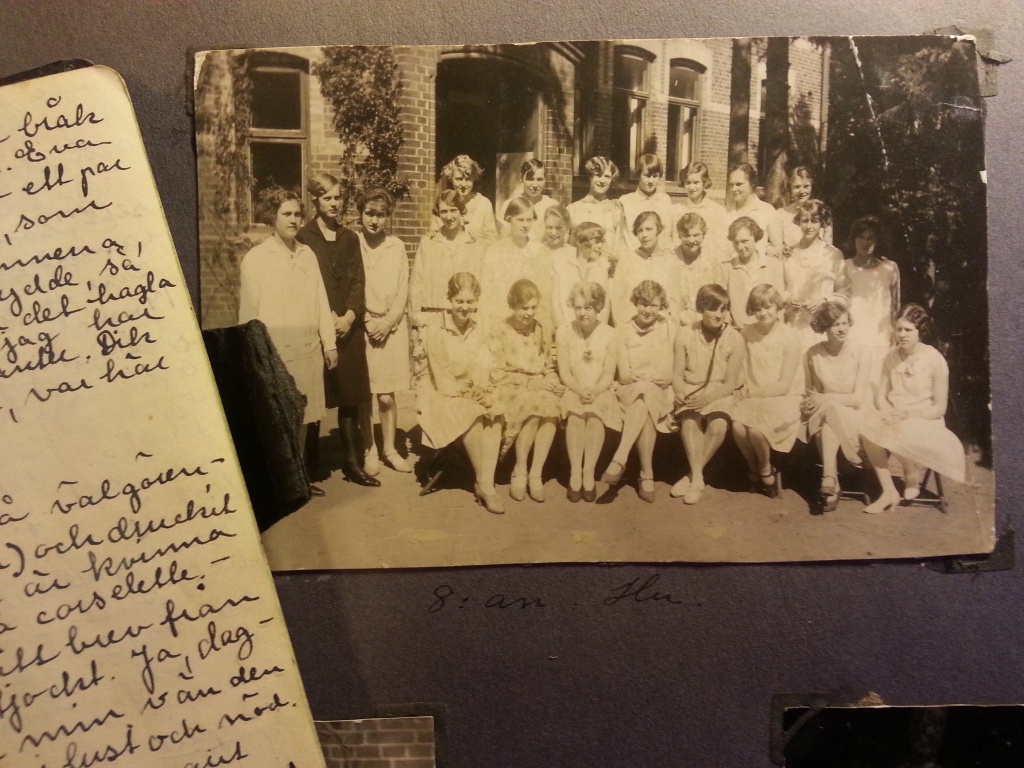 bråk
Eva
ett par
, som
ydde, så
det hagla
jag har
Dik
, var här
välgören-
) och druckit
är kvinna
corselette. -
brev från
tjockt. Ja, dag-
min vän den
lust och nöd.
8:an. Hu.